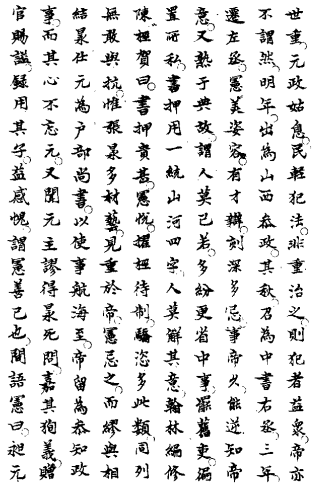 世重元政姑息民輕犯法非重治之則犯者益衆帝亦
不謂然明年出為山西叅政其秋召為中書右丞三年
遷左丞憲美姿容有才辯刻深多忌事帝久能逆知帝
意又熟于典故謂人莫已若多紛更省中事罷舊吏徧
置所私書押用一統山河四字人莫解其意翰林編修
陳桱賀曰書押貴甚憲悅擢桱待制驕恣多此類同列
無敢與抗惟張昶多材藝見重於帝憲忌之而繆與相
結昶仕元為戶部尚書以使事航海至帝留為叅知政
事而其心不忘元又聞元主謬得昶死問嘉其狥義贈
官賜謚錄用其子益感愧謂憲善已也間語憲曰昶元